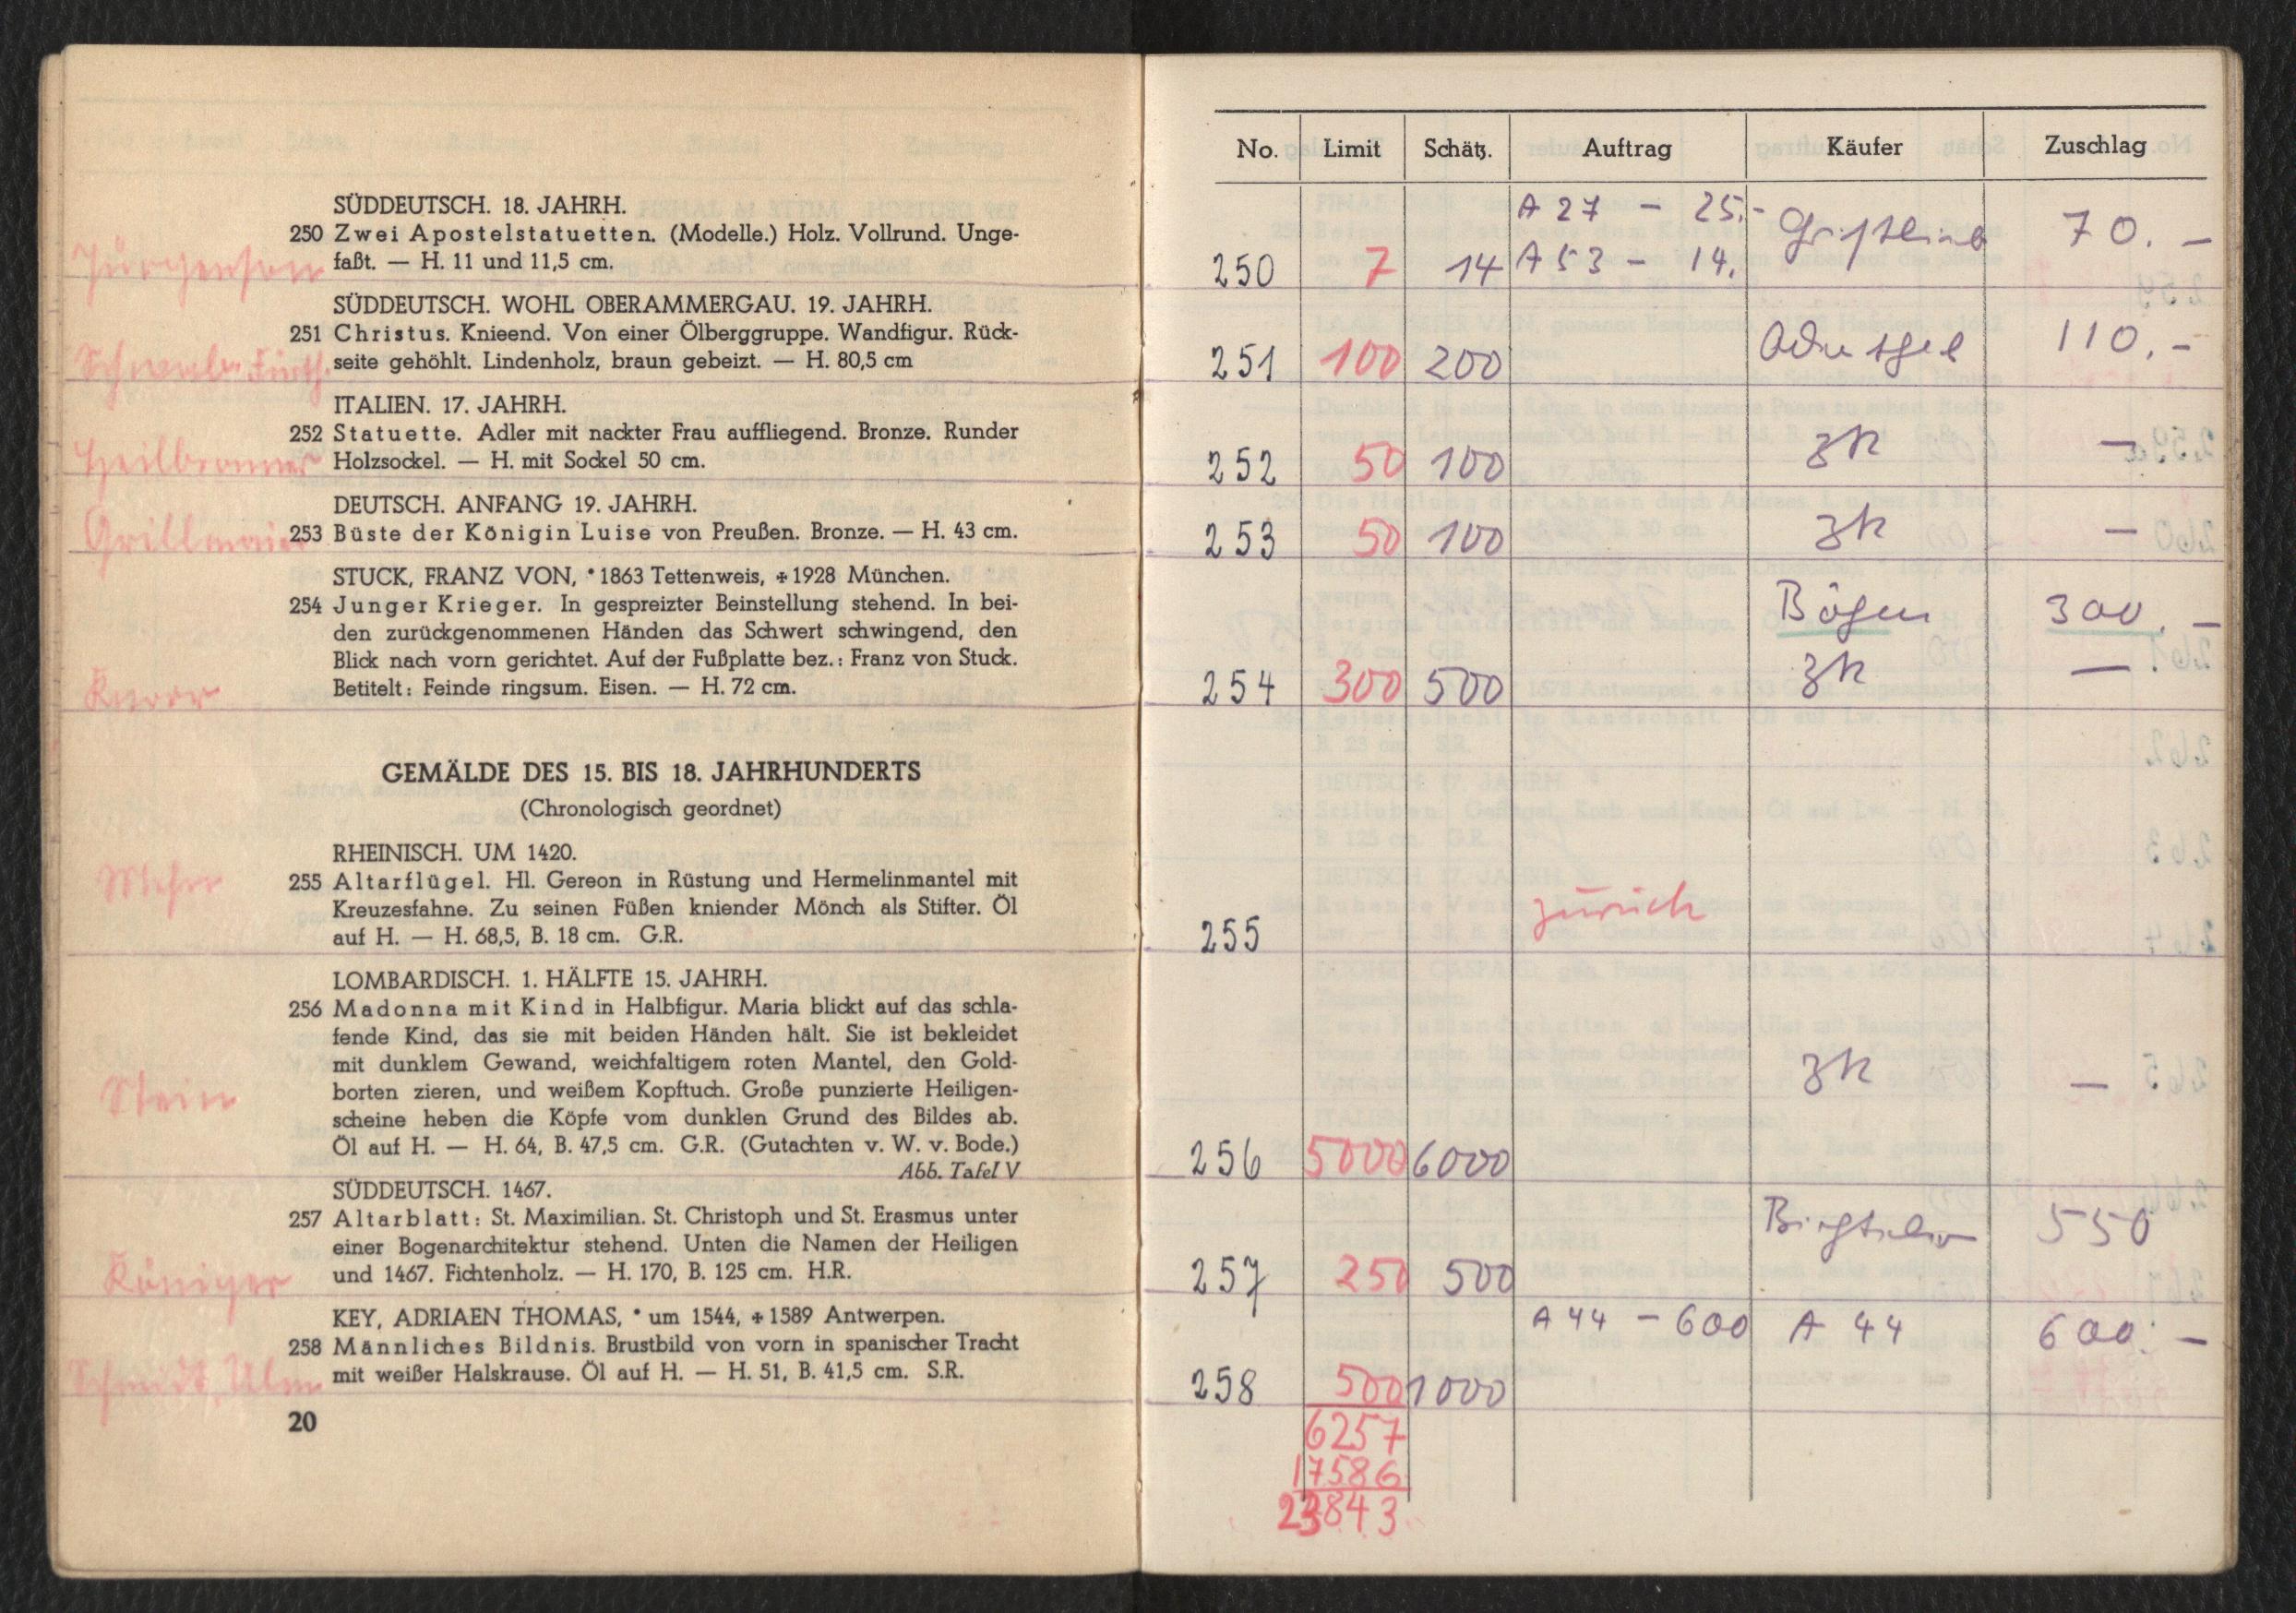 SÜDDEUTSCH. 18. JAHRH.
250 Zwei Apostelstatuetten. (Modelle.) Holz. Vollrund. Unge-
Jürgenson faßt. — H. 11 und 11,5 cm.
SÜDDEUTSCH. WOHL OBERAMMERGAU. 19. JAHRH.
251 Christus. Knieend. Von einer Ölberggruppe. Wandfigur. Rück-
seite gehöhlt. Lindenholz, braun gebeizt. — H. 80,5 cm
ITALIEN. 17. JAHRH.
252 Statuette. Adler mit nackter Frau auffliegend. Bronze. Runder
Heilbronner Holzsockel. — H. mit Sockel 50 cm.
DEUTSCH. ANFANG 19. JAHRH.
Grillmaier 253 Büste der Königin Luise von Preußen. Bronze. — H. 43 cm.
STUCK, FRANZ VON, * 1863 Tettenweis, ✠ 1928 München.
254 Junger Krieger. In gespreizter Beinstellung stehend. In bei-
den zurückgenommenen Händen das Schwert schwingend, den
Blick nach vorn gerichtet. Auf der Fußplatte bez.: Franz von Stuck.
Knorr Betitelt: Feinde ringsum. Eisen. — H. 72 cm.
GEMÄLDE DES 15. BIS 18. JAHRHUNDERTS
(Chronologisch geordnet)
RHEINISCH. UM 1420.
Mehr 255 Altarflügel. Hl. Gereon in Rüstung und Hermelinmantel mit
Kreuzesfahne. Zu seinen Füßen kniender Mönch als Stifter. Öl
auf H. — H. 68,5, B. 18 cm. G.R.
LOMBARDISCH. 1. HÄLFTE 15. JAHRH.
256 Madonna mit Kind in Halbfigur. Maria blickt auf das schla-
fende Kind, das sie mit beiden Händen hält. Sie ist bekleidet
mit dunklem Gewand, weichfaltigem roten Mantel, den Gold-
Stein borten zieren, und weißem Kopftuch. Große punzierte Heiligen-
scheine heben die Köpfe vom dunklen Grund des Bildes ab.
Öl auf H. — H. 64, B. 47,5 cm. G.R. (Gutachten v. W. v. Bode.)
Abb. Tafel V
SÜDDEUTSCH. 1467.
257 Altarblatt: St. Maximilian. St. Christoph und St. Erasmus unter
einer Bogenarchitektur stehend. Unten die Namen der Heiligen
Königer und 1467. Fichtenholz. — H. 170, B. 125 cm. H.R.
KEY, ADRIAEN THOMAS, * um 1544, ✠ 1589 Antwerpen.
258 Männliches Bildnis. Brustbild von vorn in spanischer Tracht
Schmidt, Ulm mit weißer Halskrause. Öl auf H. — H. 51, B. 41,5 cm. S.R.
20
No. Limit Schätz. Auftrag Käufer Zuschlag
A 27 – 25.-
250 7 14 A 53 – 14. 70. –
251 100 200 110. –
252 50 100 zk —
253 50 100 zk —
Bögen 300. –
254 300 500 zk —
255 zurück
256 5000 6000 zk —
257 250 500 550
258 500 1000 A 44 – 600 A 44 600. –
6257
17586
23843